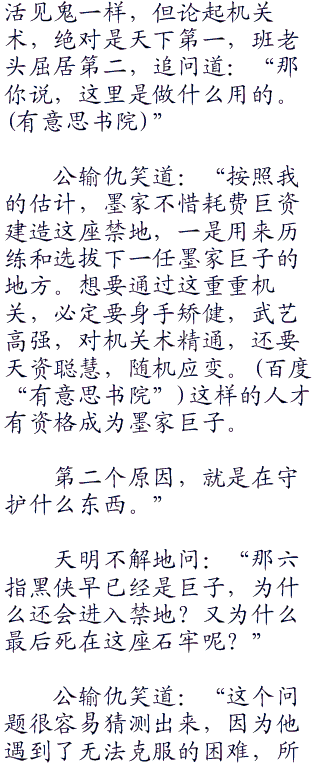 活见鬼一样，但论起机关
术，绝对是天下第一，班老
头屈居第二，追问道：“那
你说，这里是做什么用的。
(有意思书院)”
公输仇笑道：“按照我
的估计，墨家不惜耗费巨资
建造这座禁地，一是用来历
练和选拔下一任墨家巨子的
地方。想要通过这重重机
关，必定要身手矫健，武艺
高强，对机关术精通，还要
天资聪慧，随机应变。(百度
“有意思书院”)这样的人才
有资格成为墨家巨子。
第二个原因，就是在守
护什么东西。”
天明不解地问：“那六
指黑侠早已经是巨子，为什
么还会进入禁地？又为什么
最后死在这座石牢呢？”
公输仇笑道：“这个问
题很容易猜测出来，因为他
遇到了无法克服的困难，所